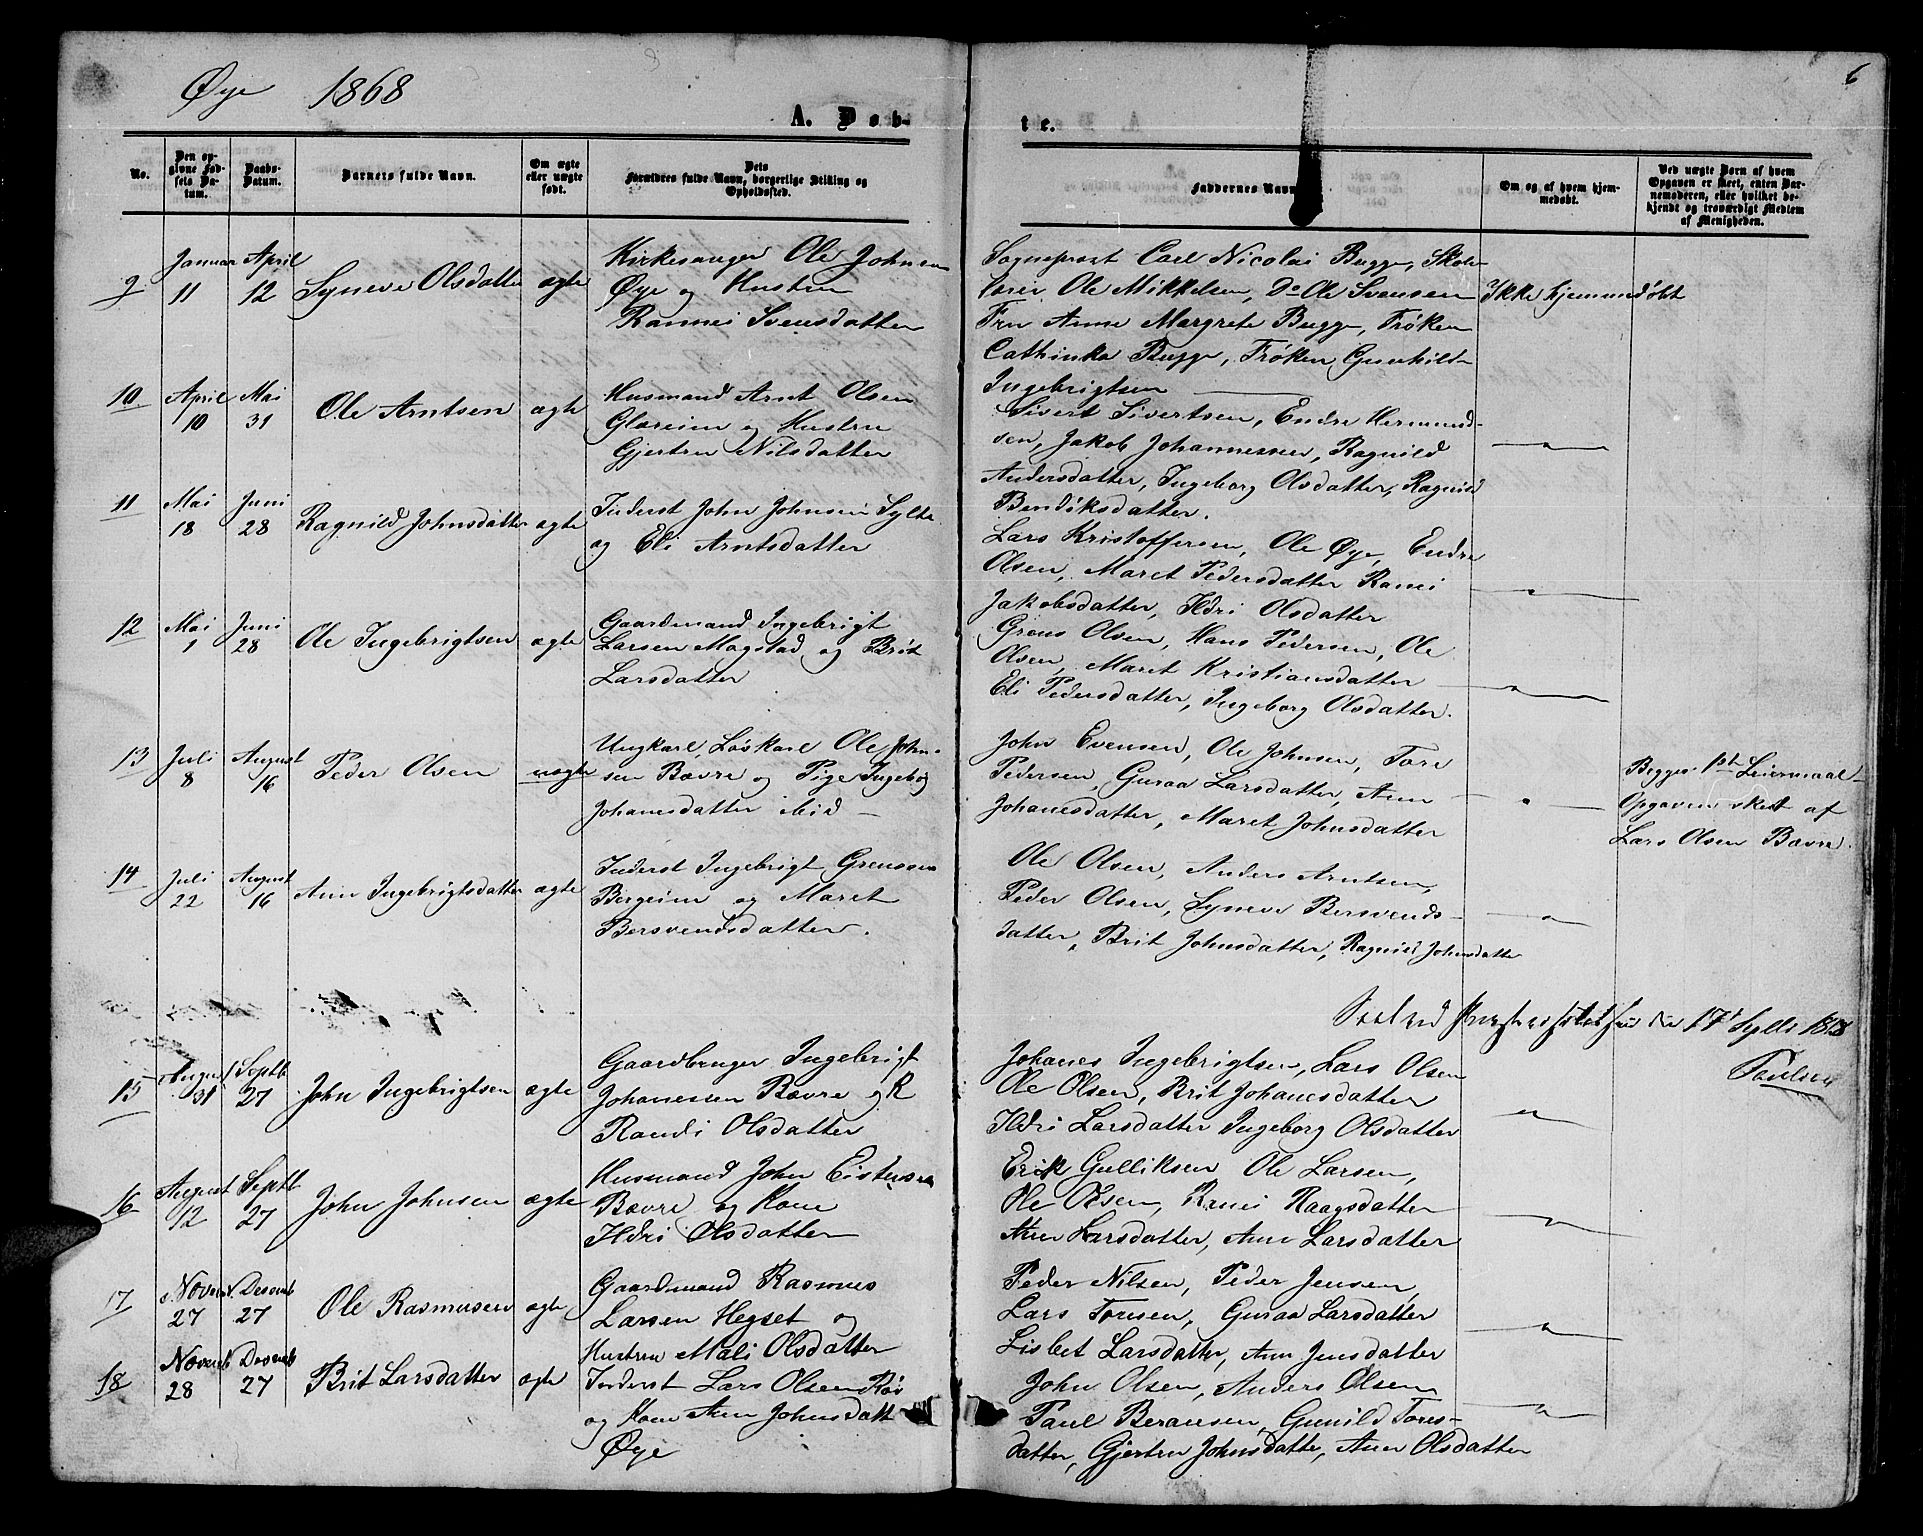 Øye 1868
A. Døbte.
6
No.
Den opgivne Fødsels Datum.
Daabs-Datum.
Barnets fulde Navn.
Om ægte eller uægte født.
Dets Forældres fulde Navn, borgerlige Stilling og Opholdssted.
Faddernes Navn
Om og af hvem hjemmedøbt.
Ved uægte Børn af hvem Opgaven er skeet, enten Barnemoderen, eller hvilket bekjendt og troværdigt Medlem af Menigheden.
9 Januar 11 April 12 Syneve Olsdatter ægte
Kirkesanger Ole Johnsen
Øye og Hustru
Rannei Svensdatter
Sogneprest Carl Nicolai Bugge, Skole-
lærer Ole Mikkelsen, Do Ole Svensen
Fru Anne Margrete Bugge, Frøken
Cathinka Bugge, Frøken Gunhild
Ingebrigtsen
Ikke hjemmedøbt
10 April 10 Mai 31 Ole Arntsen ægte
Husmand Arnt Olsen
Glæreim og Hustru
Gjertru Nilsdatter
Sivert Sivertsen, Endre Hermund-
sen, Jakob Johannessen, Ragnild
Andersdatter, Ingeborg Olsdatter, Ragnild
Bendiksdatter.
11 Mai 18 Juni 28 Ragnild Johnsdatter ægte
Inderst John Johnsen Sylte
og Eli Arntsdatter
Lars Kristoffersen, Ole Øye, Endre
Olsen, Maret Pedersdatter Ranei
Jakobsdatter, Ildri Olsdatter
12 Mai 1 Juni 28 Ole Ingebrigtsen ægte
Gaardmand Ingebrigt
Larsen Mogstad og Brit
Larsdatter
Grens Olsen, Hans Pedersen, Ole
Olsen, Maret Kristiansdatter
Eli Pedersdatter, Ingeborg Olsdatter.
13 Juli 8 August 16 Peder Olsen uægte
Ungkarl, Løskarl Ole John-
sen Bævre og Pige Ingeborg
Johanesdatter ibid —
John Evensen, Ole Johnsen, Tore
Pedersen, Guraa Larsdatter, Ann
Johanesdatter, Maret Johnsdatter
Begges 1ste Leiermaal
Opgaven skeet af
Lars Olsen Bævre.
14 Juli 22 August 16 Ann Ingebrigtsdatter ægte
Inderst Ingebrigt Grensen
Bergeim og Maret
Bersvendsdatter.
Ole Olsen, Anders Arntsen,
Peder Olsen, Syneve Bersvends-
datter, Brit Johnsdatter, Ragnild Johnsdatter
17
Paulsen
15 August 31 Septb 27 John Ingebrigtsen ægte
Gaardbruger Ingebrigt
Johanessen Bævre og K
Randi Olsdatter
Johanes Ingebrigtsen, Lars Olsen
Ole Olsen, Brit Johanesdatter
Ildri Larsdatter Ingeborg Olsdatter
16 August 12 Septb 27 John Johnsen ægte
Husmand John Eistensen
Bævre og Kone
Ildri Olsdatter
Erik Gulliksen Ole Larsen,
Ole Olsen, Ranei Haagsdatter
Ann Larsdatter, Ann Larsdatter
17 Novemb 27 Desemb 27 Ole Rasmusen ægte
Gaardmand Rasmus
Larsen Hegset og
Hustru Mali Olsdatter
Peder Nilsen, Peder Jensen,
Lars Toresen, Guraa Larsdatter
Lisbet Larsdatter, Ann Jensdatter
18 Novemb 28 Desemb 27 Brit Larsdatter ægte
Inderst Lars Olsen Røv
og Kone Ann Johnsdatt
Øye
John Olsen, Anders Olsen
Paul Bersvensen, Gunild Tores-
datter, Gjertru Johnsdatter, Ann Olsdatter